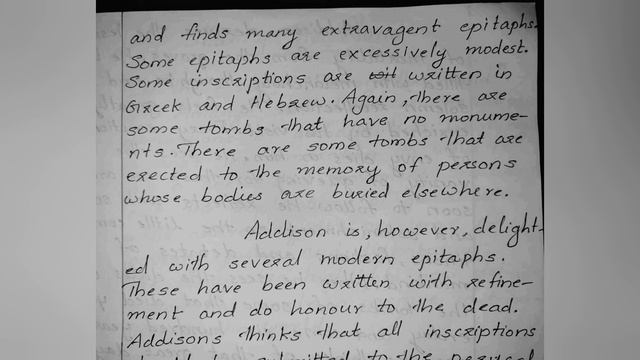 and finds many extravagent epitaphs.
Some epitaphs are excessively modest.
Some inscriptions are written in
Greek and Hebrew. Again, there are
some tombs that have no monume-
nts. There are some tombs that are
erected to the memory of persons
whose bodies are buried elsewhere.
Addison is, however, delight-
ed with several modern epitaphs.
These have been written with refine-
ment and do honour to the dead.
Addisons thinks that all inscriptions
to the